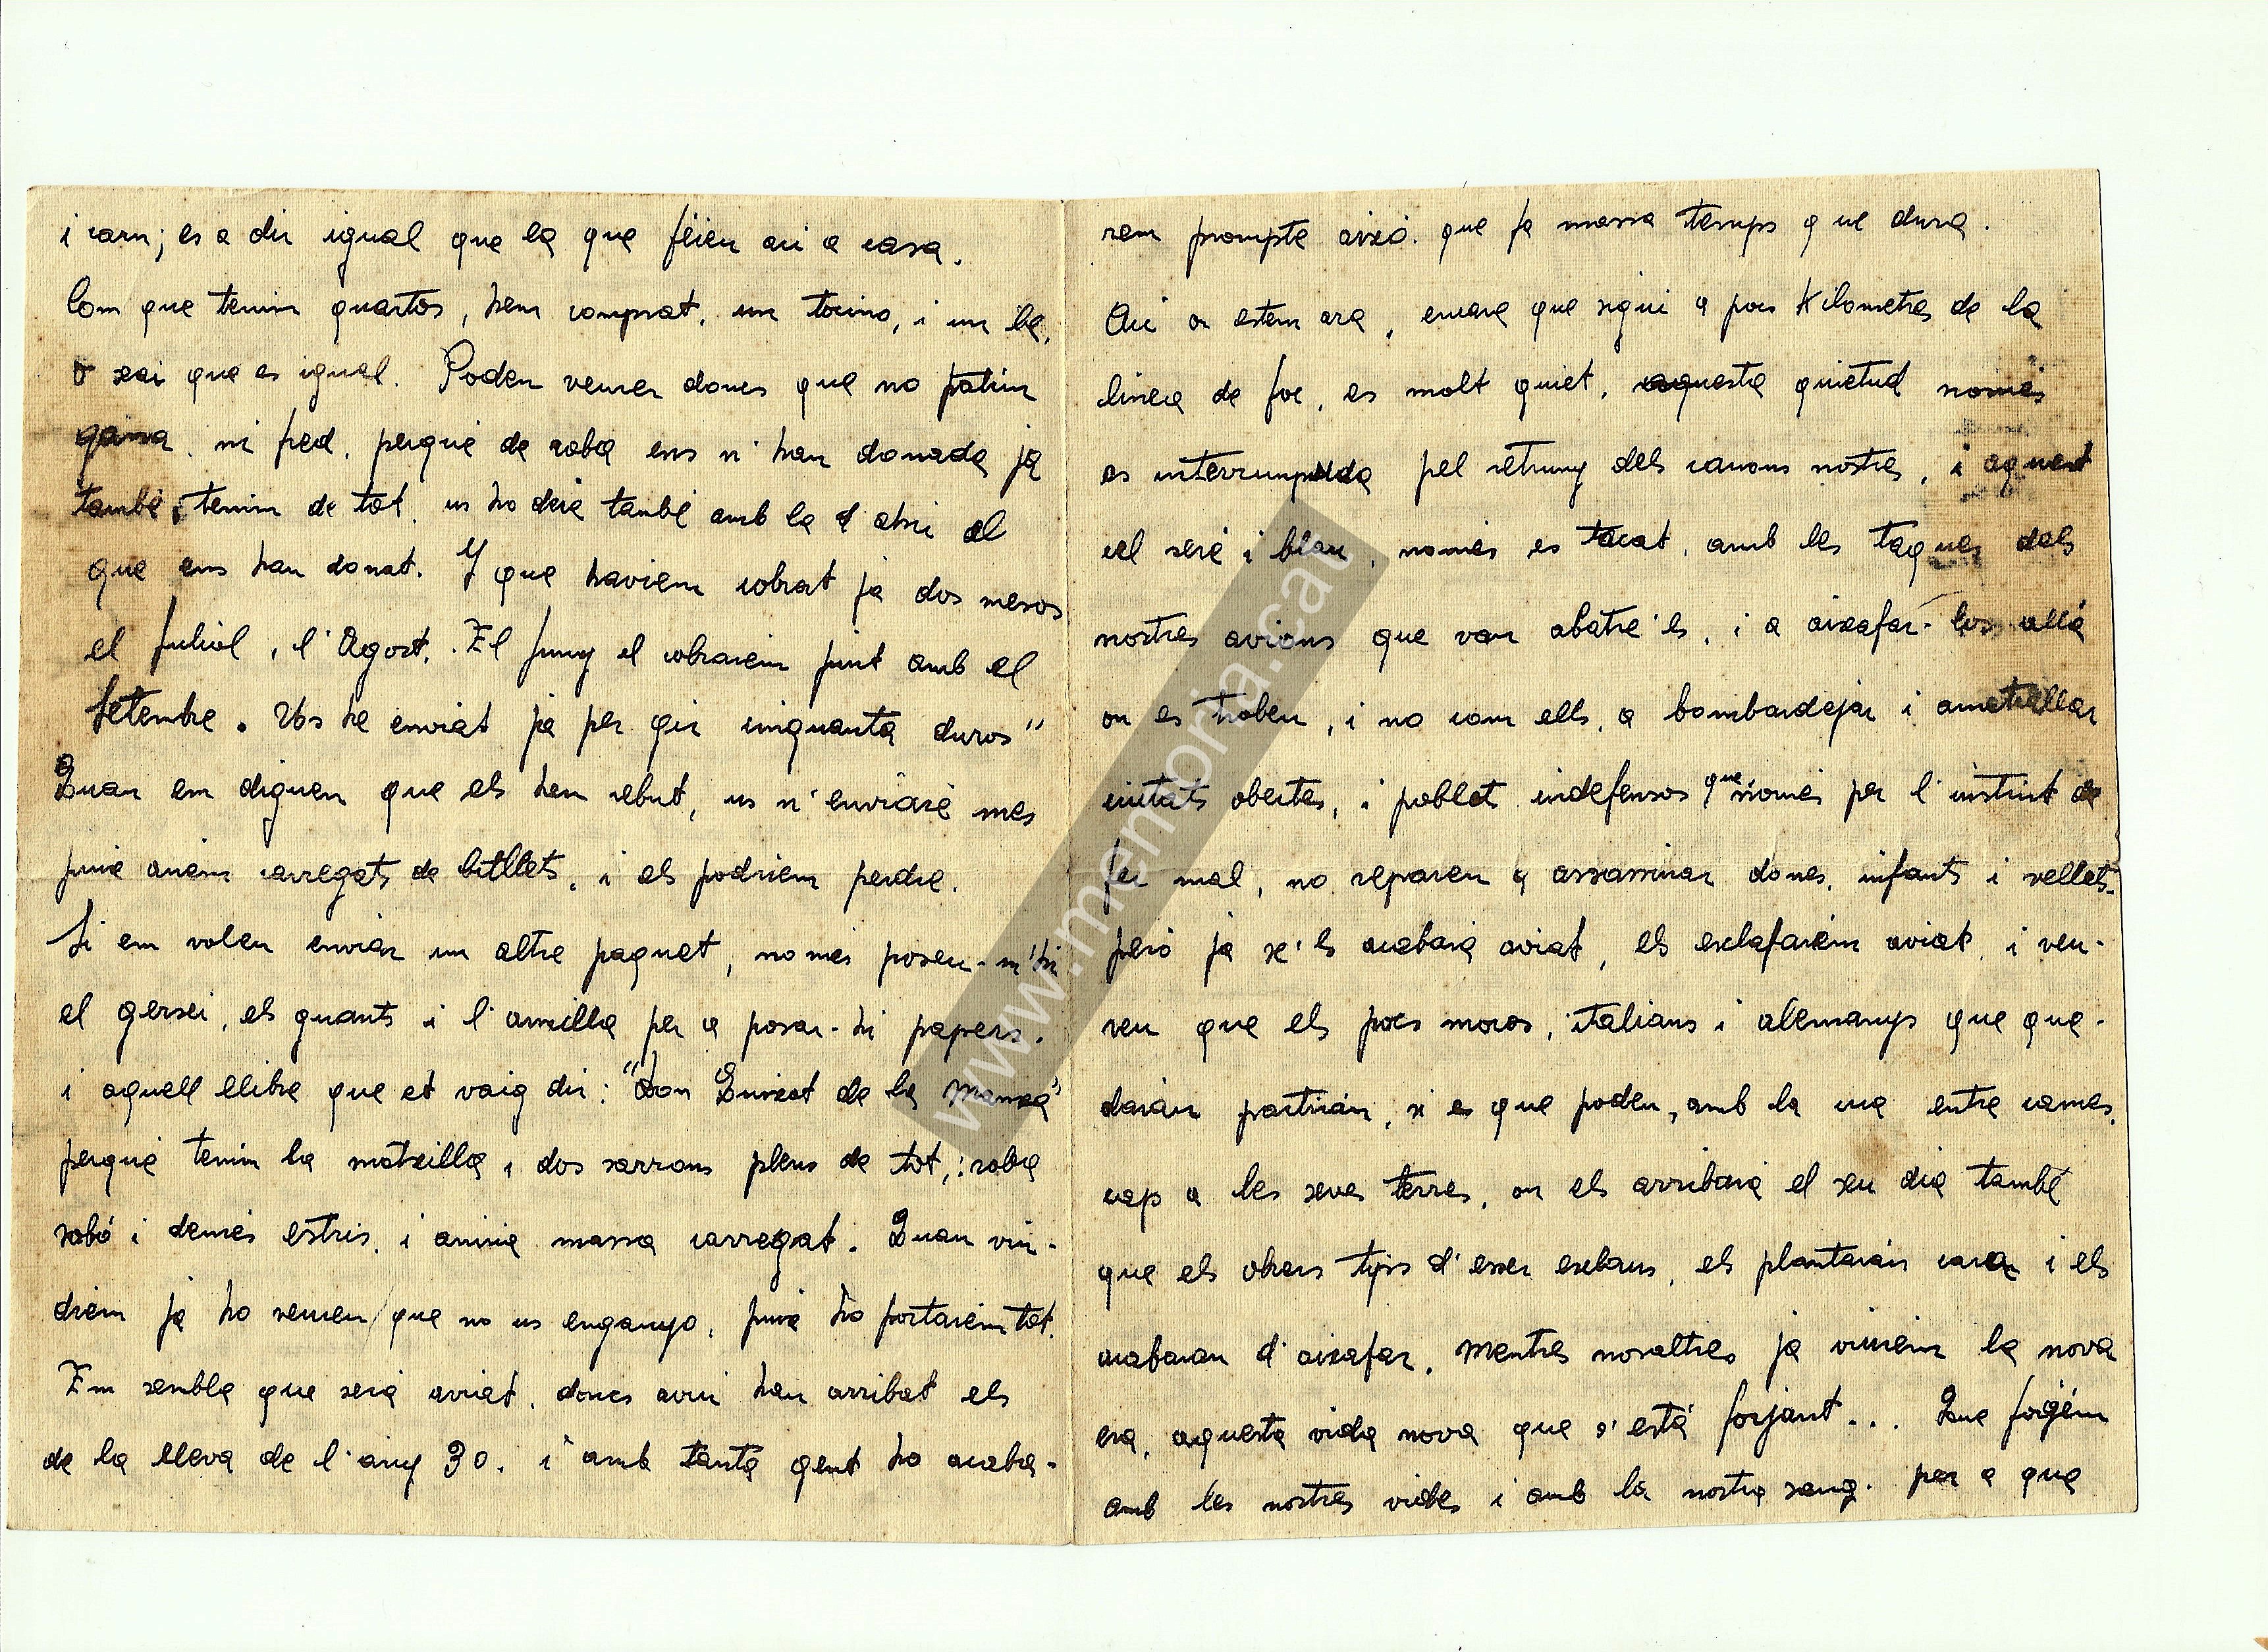 i carn; es a dir igual que la que féieu aci a casa.
Com que tenim quartos, hem comprat, un tocino, i un be,
o xai que es igual. Podeu veurer doncs que no patim
gana, ni fred, perquè de roba ens n'han donada ja
també, tenim de tot. us ho deia també amb la d'ahir el
que ens han donat. Y que haviem cobrat ja dos mesos
el Juliol, i l'Agost. El Juny el cobrarem junt amb el
Setembre. Vos he enviat ja per gir cinquanta duros"
Quan em digueu que els heu rebut, us n'enviaré mes
puix anem carregats de bitllets, i els podriem perdre.
Si em voleu enviar un altre paquet, només poseu-m'hi
el gersei, els guants i l'armilla per a posar-hi papers.
i aquell llibre que et vaig dir: "Don Quixot de la Manxa"
perquè tenim la motxilla i dos sarrons plens de tot,: roba
sabó i demés estris, i aniria massa carregat. Quan vin-
drem ja ho veureu que no us enganyo, puix ho portarém tot.
Em sembla que serà aviat, doncs avui han arribat els
de la lleva de l'any 30. i amb tanta gent ho acaba-
rem prompte aixó. que fa massa temps que dura.
Aci on estem ara, encara que sigui a pocs Kilometres de la
linea de foc, es molt quiet, aquesta quietud només
es interrumpuda pel retruny dels canons nostres, i aquest
cel seré i blau, només es tacat, amb les taques dels
nostres avions que van abatre'ls, i a aixafar-los allà
on es troben, i no com ells, a bombardejar i ametrallar
ciutats obertes, i poblets indefensos que només per l'instint de
fer mal, no reparen a assassinar dones, infants i vellets.
peró ja se'ls acabará aviat, els esclafarém aviat, i veu-
reu que els pocs moros, italians i alemanys que que-
darán partirán, si es que poden, amb la cua entre cames,
cap a les seves terres, on els arribará el seu dia també
que els obrers tips d'esser esclaus, els plantarán cara i els
acabaran d'aixafar. Mentres nosaltres ja viurém la nova
era, aquesta vida nova que s'está forjant... Que forjém
amb les nostres vides i amb la nostra sang. per a que
www.memoria.cat